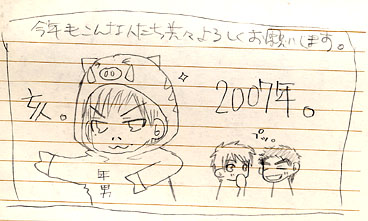 今年もこんな人たち共々よろしくお願いします。
亥。
2007年。
プッ。
年男